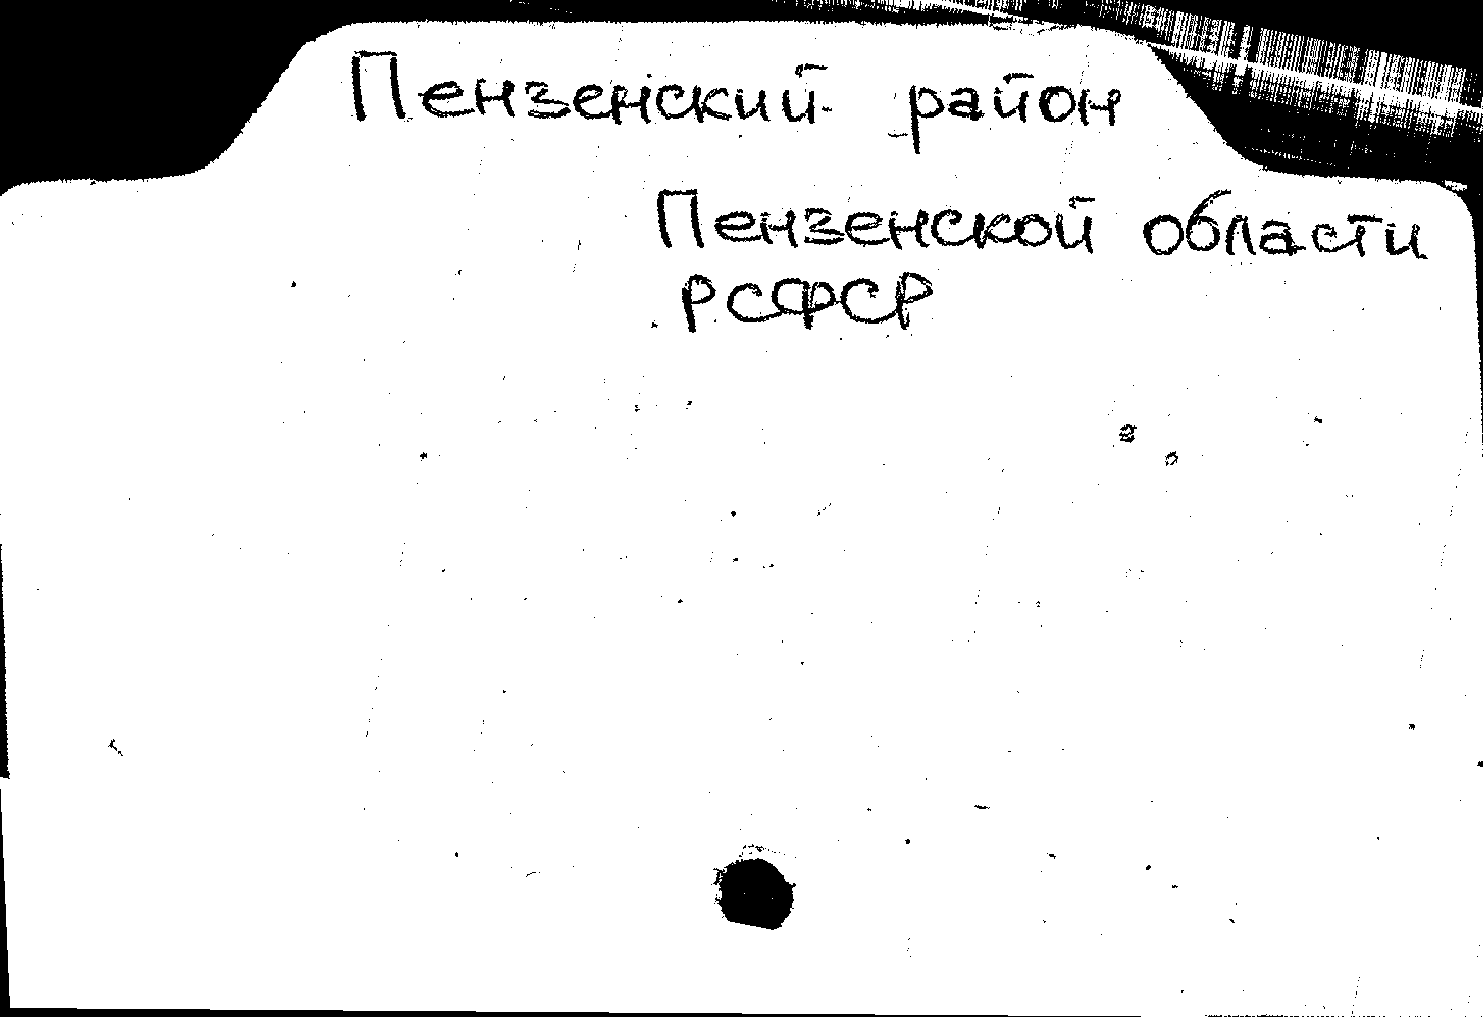 Пензенский район
Пензенской области
РСФСР